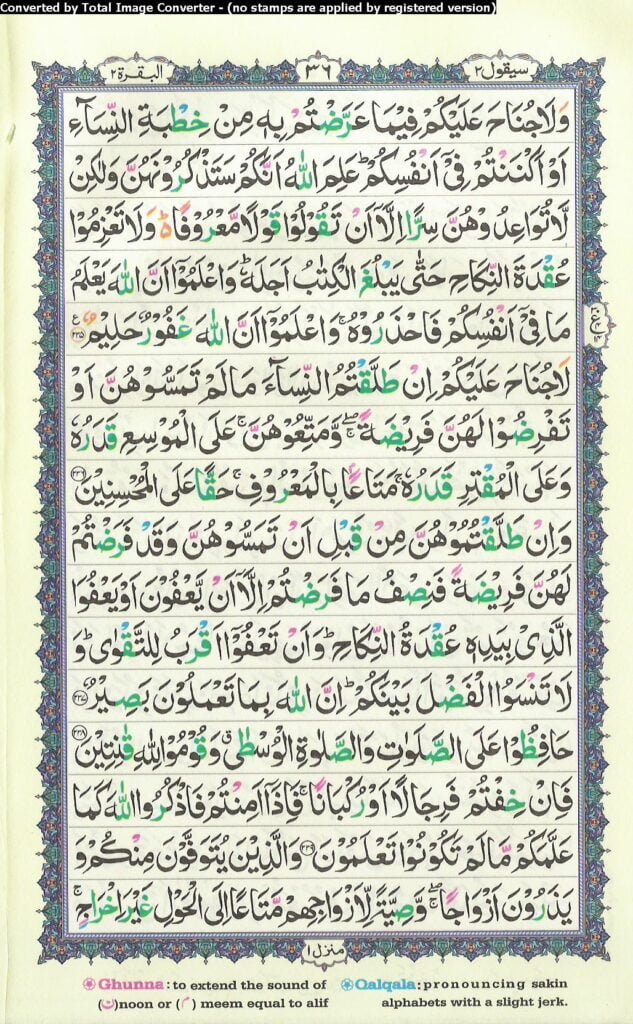 Converted by Total Image Converter - (no stamps are applied by registered version)
سيقول ٢ ٣٦ البقرة ٢
وَلَا جُنَاحَ عَلَيْكُمْ فِيْمَا عَرَّضْتُمْ بِهٖ مِنْ خِطْبَةِ النِّسَآءِ
اَوْ اَكْنَنْتُمْ فِيْٓ اَنْفُسِكُمْ ؕ عَلِمَ اللّٰهُ اَنَّكُمْ سَتَذْكُرُوْنَهُنَّ وَلٰكِنْ
لَّا تُوَاعِدُوْهُنَّ سِرًّا اِلَّآ اَنْ تَقُوْلُوْا قَوْلًا مَّعْرُوْفًا ۬ؕ وَلَا تَعْزِمُوْا
عُقْدَةَ النِّكَاحِ حَتّٰى يَبْلُغَ الْكِتٰبُ اَجَلَهٗ ؕ وَاعْلَمُوْٓا اَنَّ اللّٰهَ يَعْلَمُ
مَا فِيْٓ اَنْفُسِكُمْ فَاحْذَرُوْهُ ۚ وَاعْلَمُوْٓا اَنَّ اللّٰهَ غَفُوْرٌ حَلِيْمٌ ﴿٢٣٥﴾
لَا جُنَاحَ عَلَيْكُمْ اِنْ طَلَّقْتُمُ النِّسَآءَ مَا لَمْ تَمَسُّوْهُنَّ اَوْ
تَفْرِضُوْا لَهُنَّ فَرِيْضَةً ۖۚ وَّمَتِّعُوْهُنَّ ۚ عَلَى الْمُوْسِعِ قَدَرُهٗ
وَعَلَى الْمُقْتِرِ قَدَرُهٗ ۚ مَتَاعًۢا بِالْمَعْرُوْفِ ۚ حَقًّا عَلَى الْمُحْسِنِيْنَ ﴿٢٣٦﴾
وَاِنْ طَلَّقْتُمُوْهُنَّ مِنْ قَبْلِ اَنْ تَمَسُّوْهُنَّ وَقَدْ فَرَضْتُمْ
لَهُنَّ فَرِيْضَةً فَنِصْفُ مَا فَرَضْتُمْ اِلَّآ اَنْ يَّعْفُوْنَ اَوْ يَعْفُوَا
الَّذِيْ بِيَدِهٖ عُقْدَةُ النِّكَاحِ ؕ وَاَنْ تَعْفُوْٓا اَقْرَبُ لِلتَّقْوٰى ؕ وَ
لَا تَنْسَوُا الْفَضْلَ بَيْنَكُمْ ؕ اِنَّ اللّٰهَ بِمَا تَعْمَلُوْنَ بَصِيْرٌ ﴿٢٣٧﴾
حَافِظُوْا عَلَى الصَّلَوٰتِ وَالصَّلٰوةِ الْوُسْطٰى ۗ وَقُوْمُوْا لِلّٰهِ قٰنِتِيْنَ ﴿٢٣٨﴾
فَاِنْ خِفْتُمْ فَرِجَالًا اَوْ رُكْبَانًا ۚ فَاِذَآ اَمِنْتُمْ فَاذْكُرُوا اللّٰهَ كَمَا
عَلَّمَكُمْ مَّا لَمْ تَكُوْنُوْا تَعْلَمُوْنَ ﴿٢٣٩﴾ وَالَّذِيْنَ يُتَوَفَّوْنَ مِنْكُمْ وَ
يَذَرُوْنَ اَزْوَاجًا ۖۚ وَّصِيَّةً لِّاَزْوَاجِهِمْ مَّتَاعًا اِلَى الْحَوْلِ غَيْرَ اِخْرَاجٍ ۚ
منزل ١
Ghunna: to extend the sound of (ن) noon or (م) meem equal to alif
Qalqala: pronouncing sakin alphabets with a slight jerk.